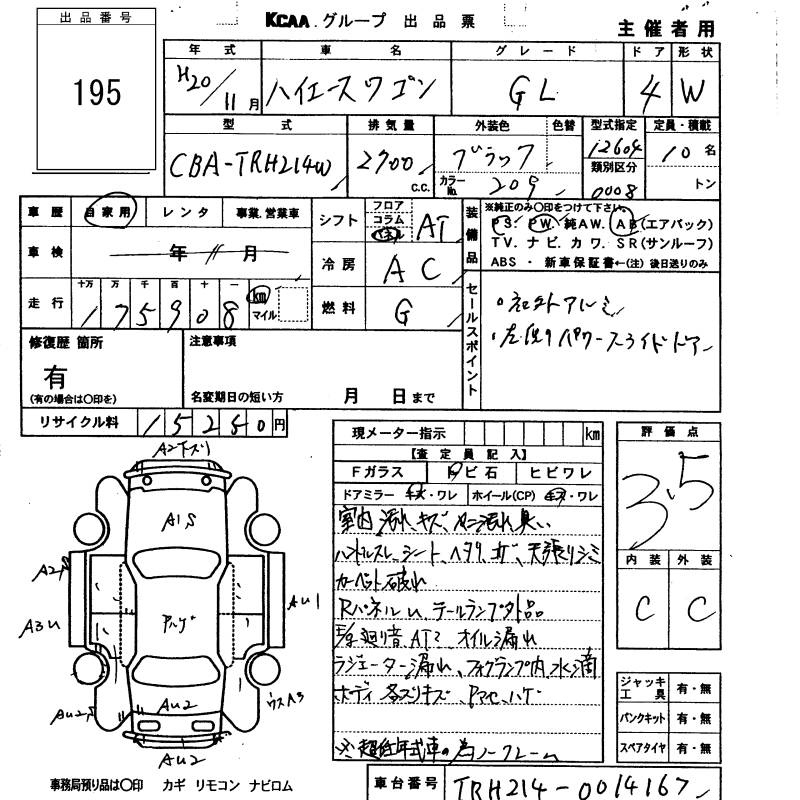 出品番号
195
KCAA.グループ 出品票
主催者用
年式 車名 グレード ドア 形状
H20/11月 ハイエースワゴン GL 4 W
型式 排気量 外装色 色替 型式指定 定員・積載
CBA-TRH214W 2700 c.c. ブラック 12604 10名
カラーNo. 209 類別区分 0008 トン
車歴 自家用 レンタ 事業.営業車
車検 年 11 月
走行 十万 万 千 百 十 一
175908 km マイル
シフト フロア コラム パネル AT
冷房 AC
燃料 G
装備品
※純正のみ〇印をつけて下さい。
PS. PW. 純AW. AB(エアバック)
TV. ナビ. カワ. SR(サンルーフ)
ABS・新車保証書←(注)後日送りのみ
セールスポイント
・社外アルミ
・左側パワースライドドアー
修復歴 箇所
有
(有の場合は〇印を)
注意事項
名変期日の短い方 月 日まで
リサイクル料 15250円
現メーター指示 km
【査定員記入】
Fガラス 飛ビ石 ヒビワレ
ドアミラー キズ・ワレ ホイール(CP) キズ・ワレ
室内 汚れ、キズ、ヤニ汚れ臭い
ハンドルスレ、シート、ヘタリ、コゲ、天張りシミ
カーペット破れ
RパネルU、テールランプ外品
AT2 オイル漏れ
ラジエーター漏れ、フォグランプ内水滴
ボディ各スリキズ、ハゲ
※超低年式車の為ノークレーム
評価点
3.5
内装 外装
C C
ジャッキ工具 有・無
パンクキット 有・無
スペアタイヤ 有・無
A2下スリ
A1S
A2S
A3U
AU1
AU2S
AU2
AU2
事務局預り品は〇印 カギ リモコン ナビロム
車台番号 TRH214-0014167